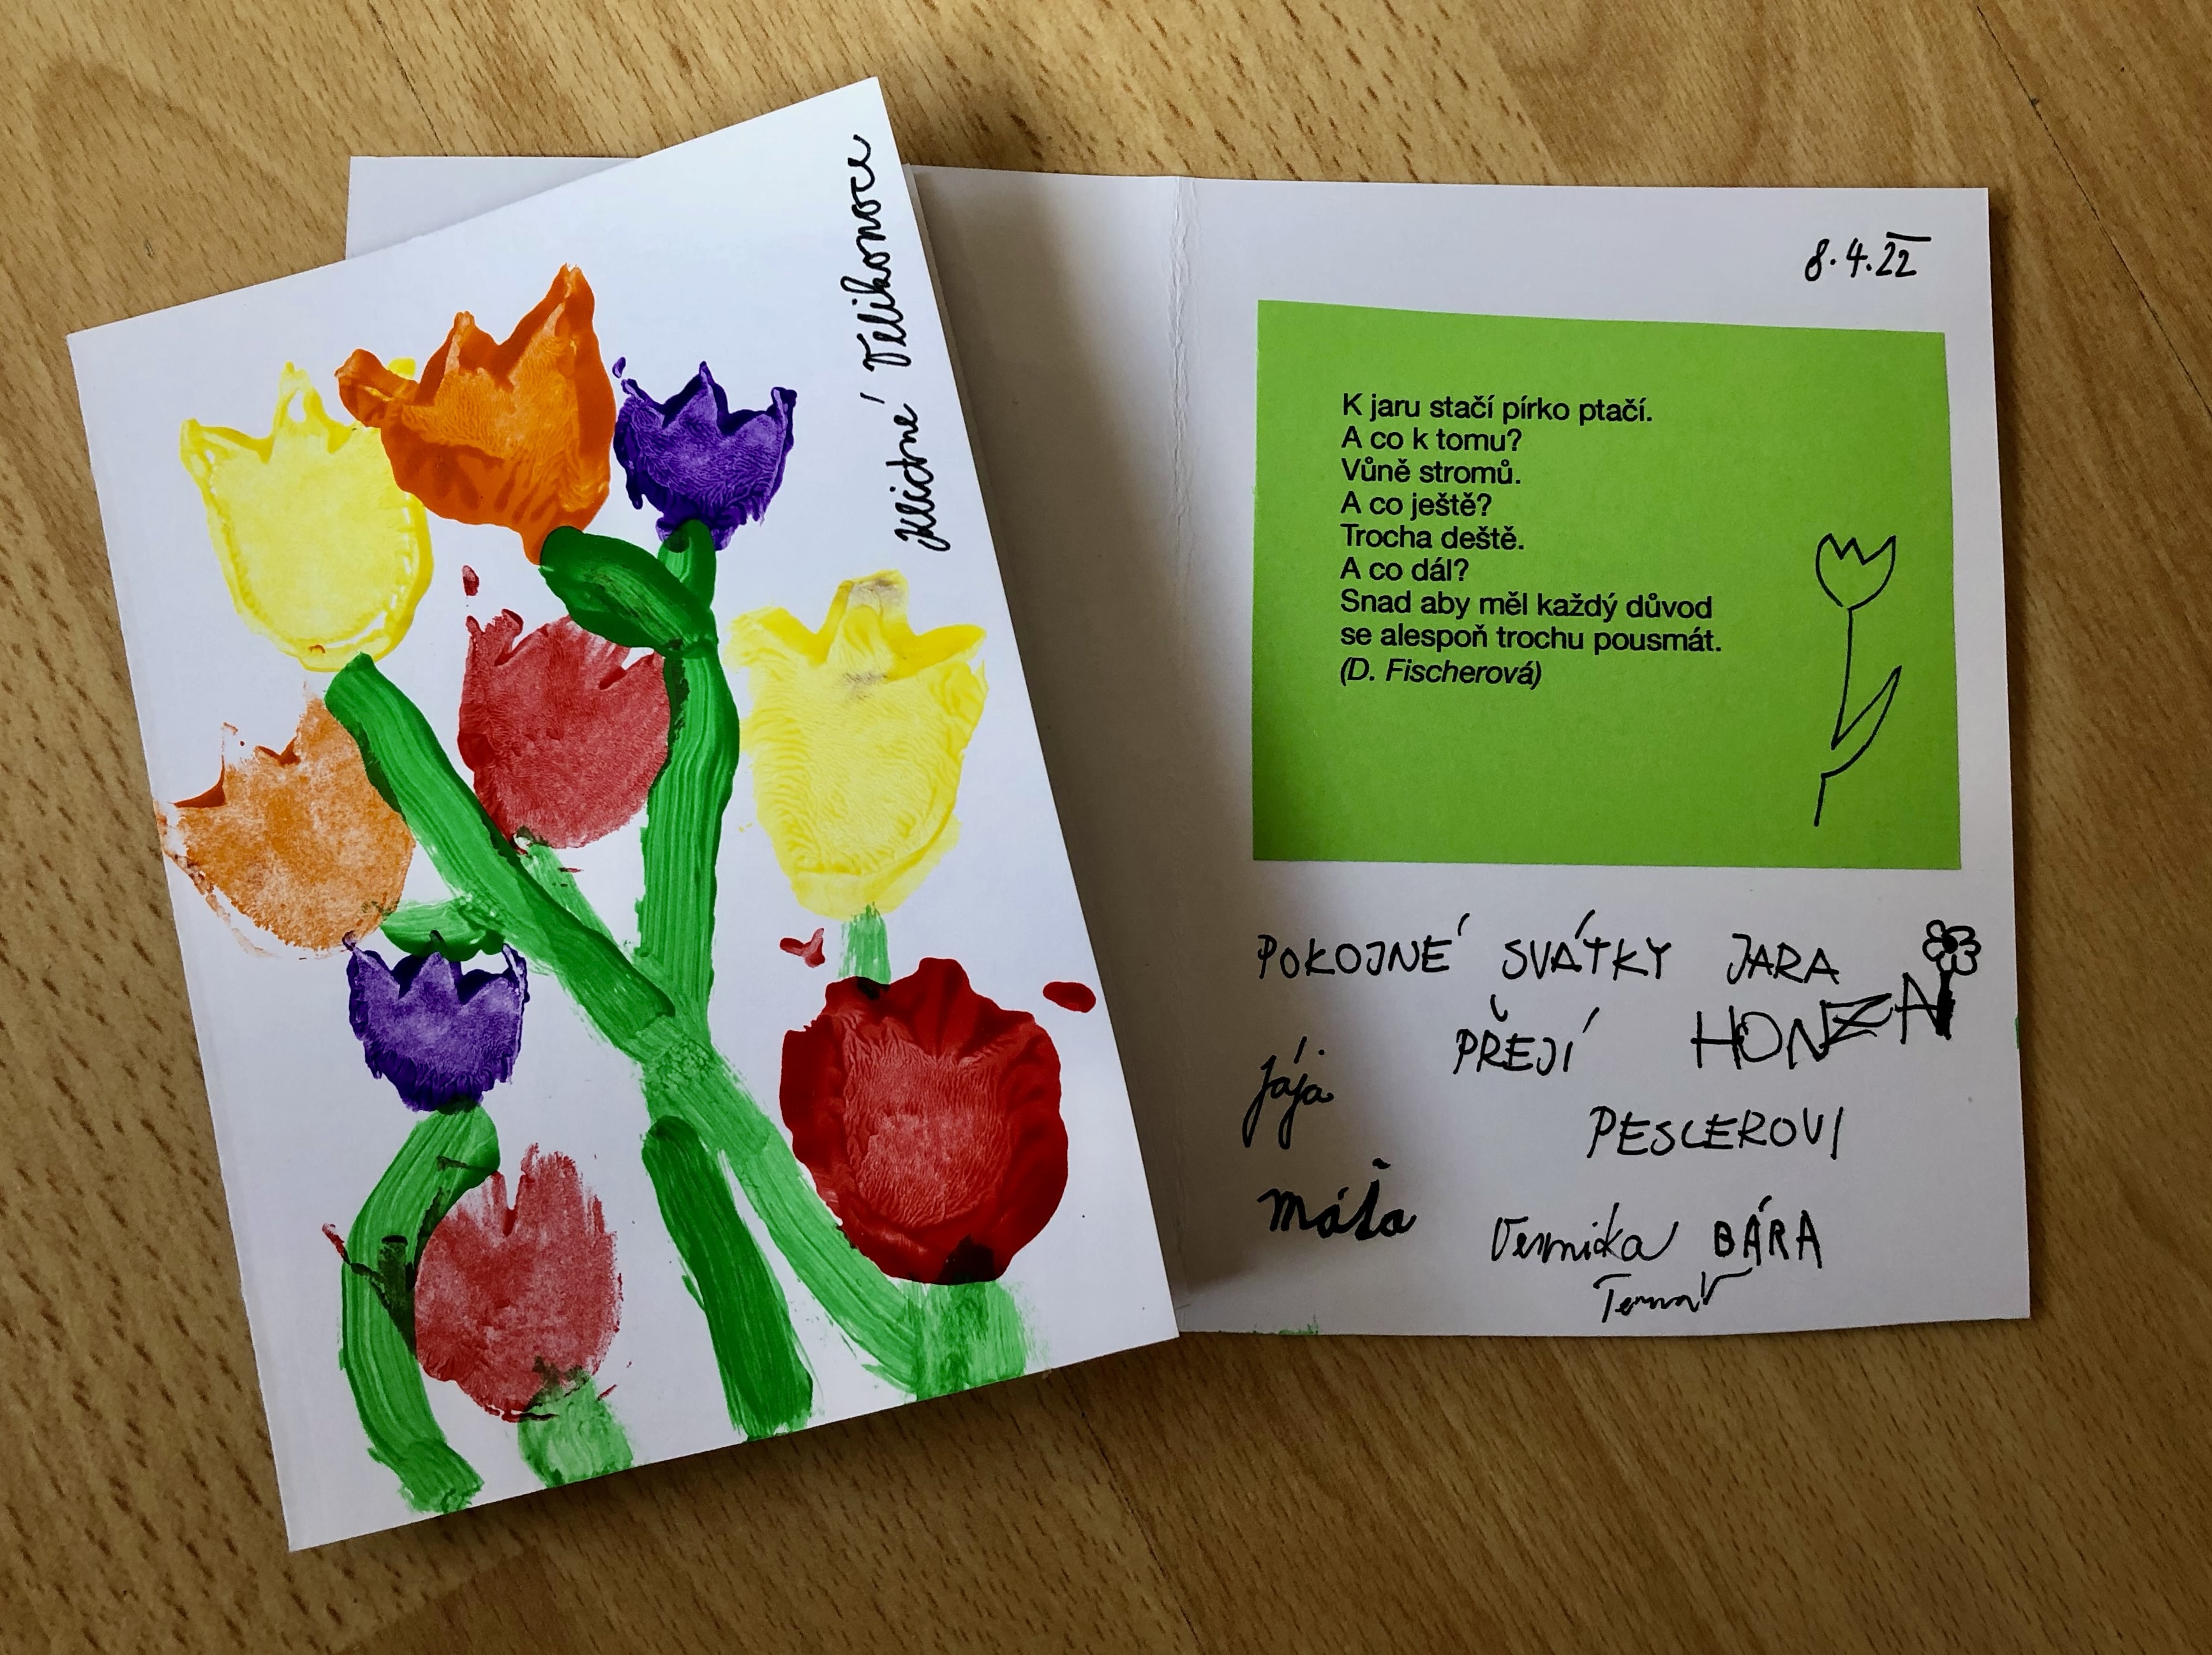 Klidné Velikonoce
8.4.22
K jaru stačí pírko ptačí.
A co k tomu?
Vůně stromů.
A co ještě?
Trocha deště.
A co dál?
Snad aby měl každý důvod
se alespoň trochu pousmát.
(D. Fischerová)
POKOJNÉ SVÁTKY JARA
PŘEJÍ HONZA
Jája
PESLEROVI
Máťa
Veronika BÁRA